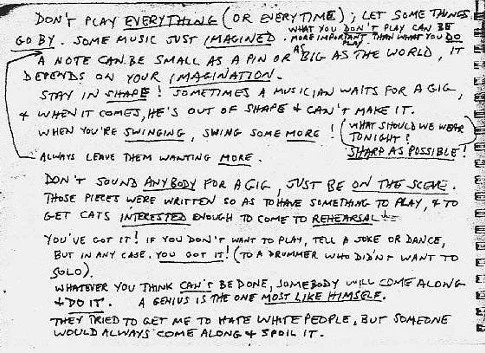 DON'T PLAY EVERYTHING (OR EVERY TIME); LET SOME THINGS
GO BY. SOME MUSIC JUST IMAGINED. WHAT YOU DON'T PLAY CAN BE
MORE IMPORTANT THAN WHAT YOU DO PLAY.
A NOTE CAN BE SMALL AS A PIN OR AS BIG AS THE WORLD, IT
DEPENDS ON YOUR IMAGINATION.
STAY IN SHAPE! SOMETIMES A MUSICIAN WAITS FOR A GIG,
& WHEN IT COMES, HE'S OUT OF SHAPE & CAN'T MAKE IT.
WHEN YOU'RE SWINGING, SWING SOME MORE!
(WHAT SHOULD WE WEAR
TONIGHT?
SHARP AS POSSIBLE!)
ALWAYS LEAVE THEM WANTING MORE.
DON'T SOUND ANYBODY FOR A GIG, JUST BE ON THE SCENE.
THOSE PIECES WERE WRITTEN SO AS TO HAVE SOMETHING TO PLAY, & TO
GET CATS INTERESTED ENOUGH TO COME TO REHEARSAL!
YOU'VE GOT IT! IF YOU DON'T WANT TO PLAY, TELL A JOKE OR DANCE,
BUT IN ANY CASE, YOU GOT IT! (TO A DRUMMER WHO DIDN'T WANT TO
SOLO).
WHATEVER YOU THINK CAN'T BE DONE, SOMEBODY WILL COME ALONG
& DO IT. A GENIUS IS THE ONE MOST LIKE HIMSELF.
THEY TRIED TO GET ME TO HATE WHITE PEOPLE, BUT SOMEONE
WOULD ALWAYS COME ALONG & SPOIL IT.